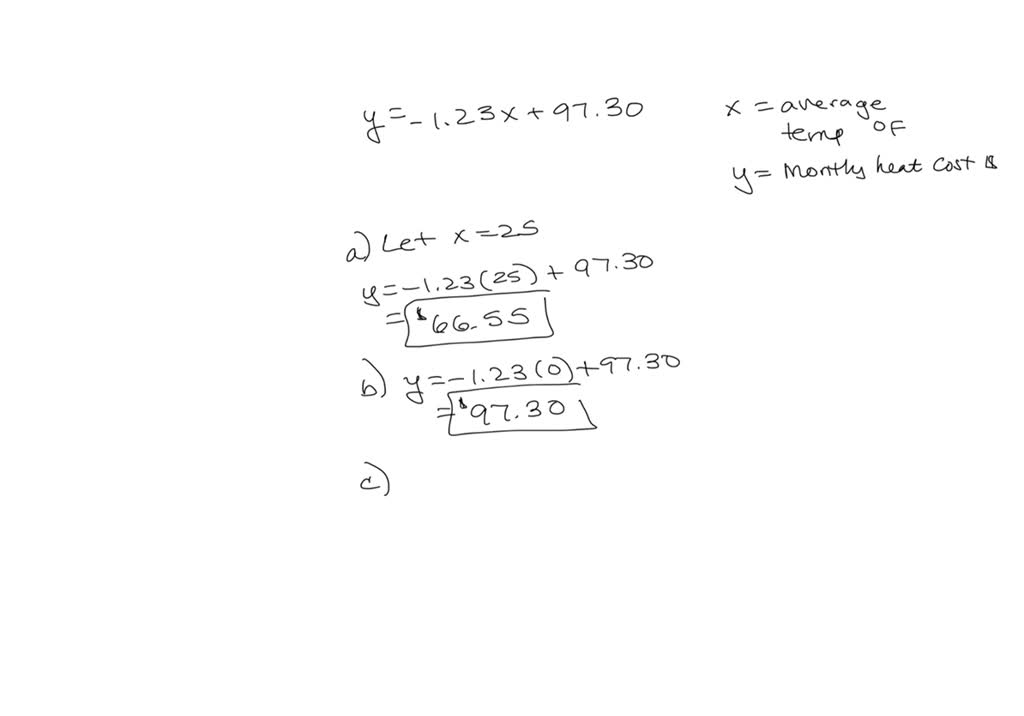 y = -1.23x + 97.30
x = average
temp °F
y = Monthly heat cost $
a) Let x = 25
y = -1.23(25) + 97.30
= $66.55
b) y = -1.23(0) + 97.30
= $97.30
c)